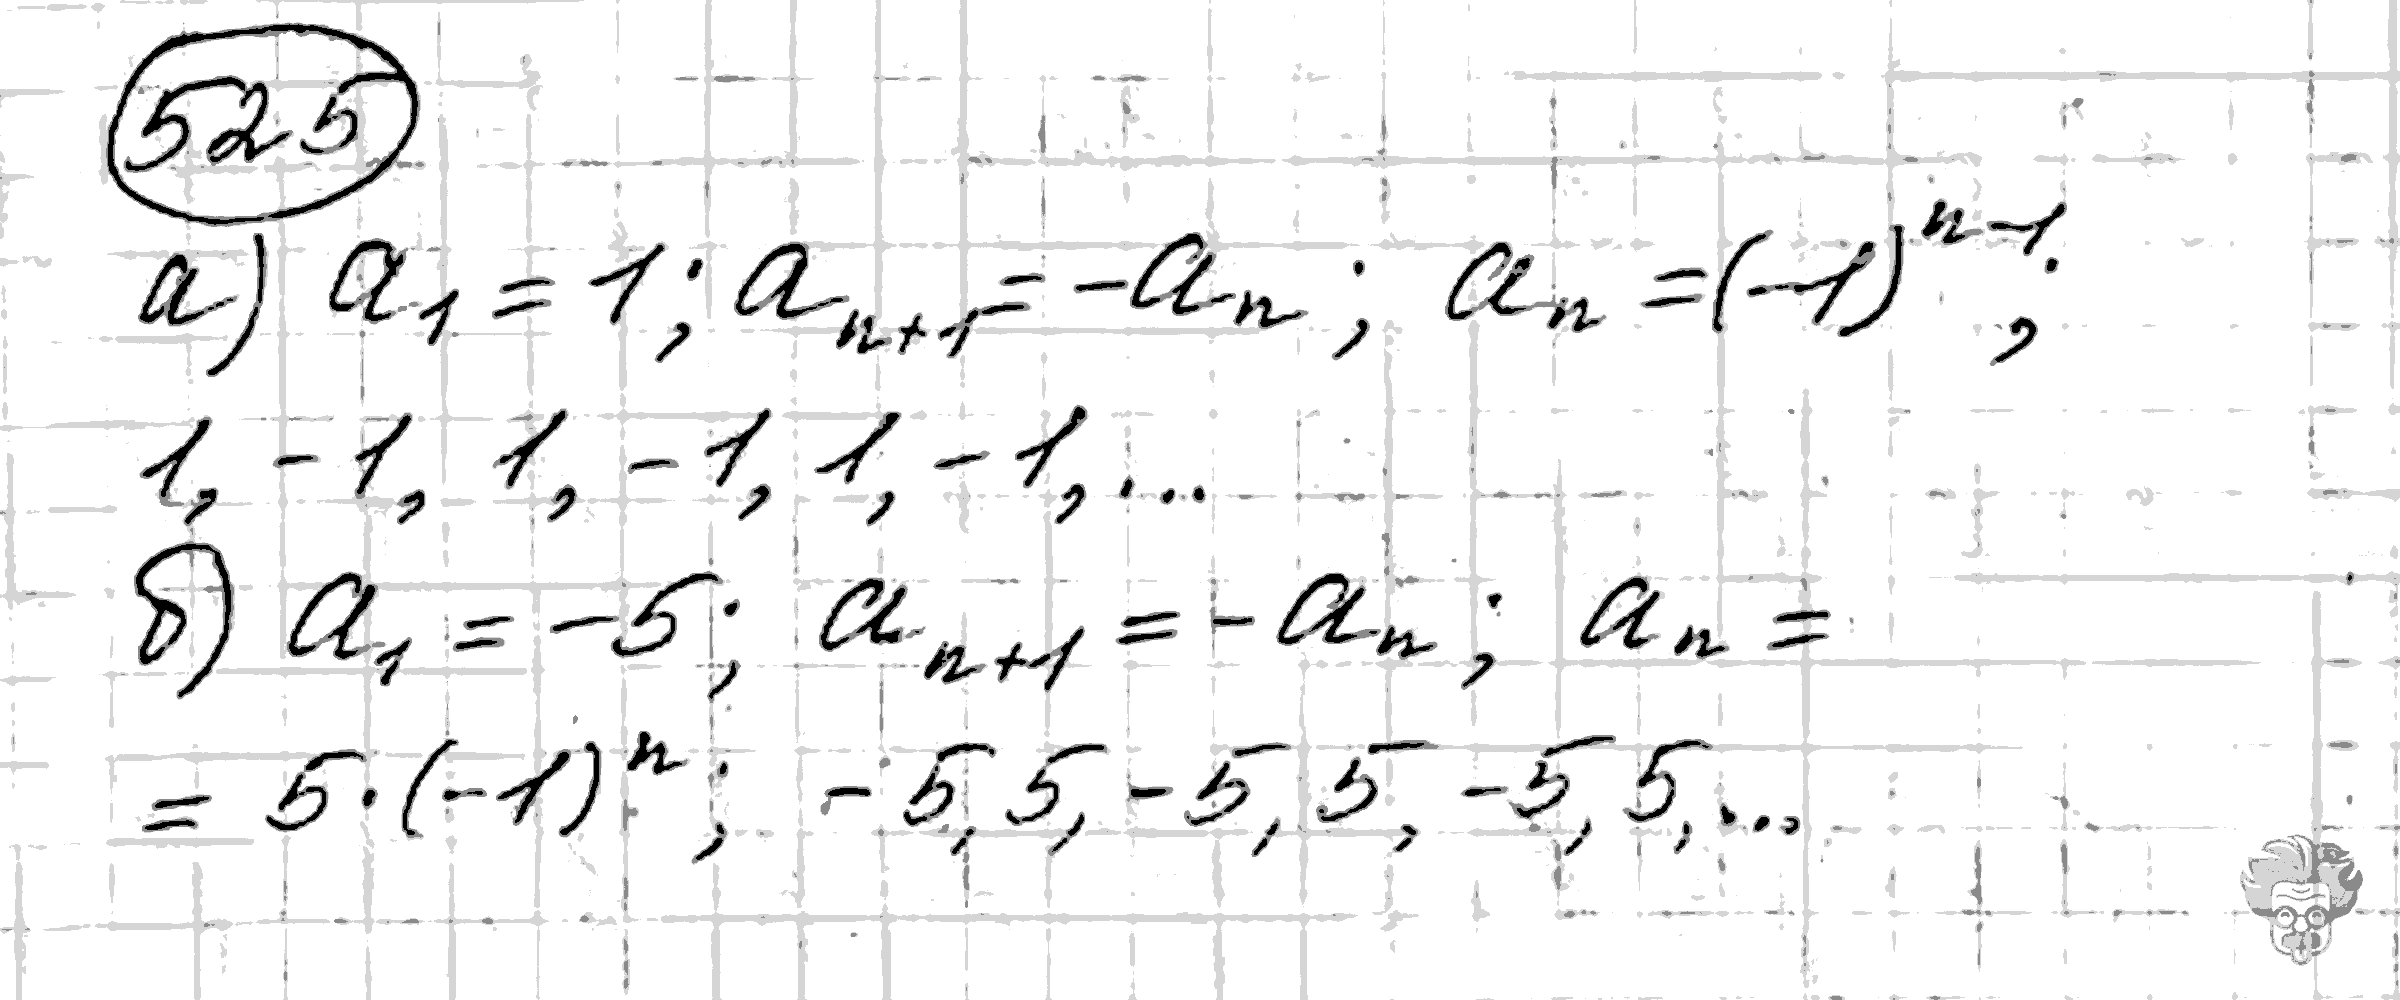 525
а) a₁ = 1; aₙ₊₁ = -aₙ; aₙ = (-1)ⁿ⁻¹;
1, -1, 1, -1, 1, -1, ...
б) a₁ = -5; aₙ₊₁ = -aₙ; aₙ =
= 5·(-1)ⁿ; -5, 5, -5, 5, -5, 5, ...